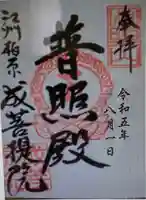 奉拝
令和五年
八月一日
普照殿
江州柏原
成菩提院